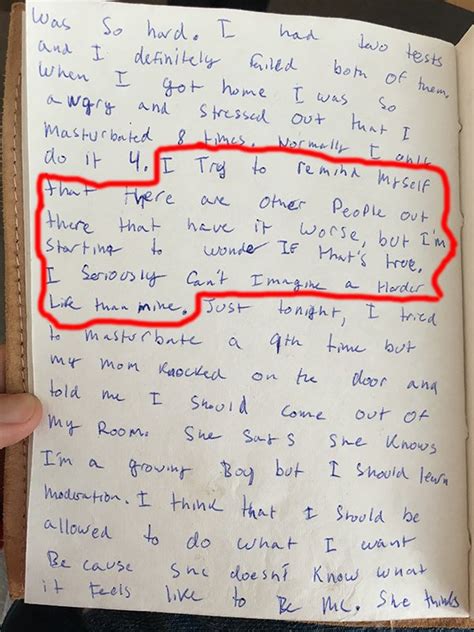 was so hard. I had two tests
and I definitely failed both of them.
When I got home I was so
angry and stressed out that I
Masturbated 8 times. Normally I only
do it 4. I Try to remind Myself
that there are other People out
there that have it worse, but I'm
starting to wonder IF that's true.
I Seriously Can't Imagine a Harder
Life than mine. Just tonight, I tried
to masturbate a 9th time but
my mom knocked on the door and
told me I should come out of
my Room. She says she Knows
I'm a growing Boy but I should learn
moderation. I think that I should be
allowed to do what I want
Because she doesn't Know what
it Feels like to Be me. She thinks